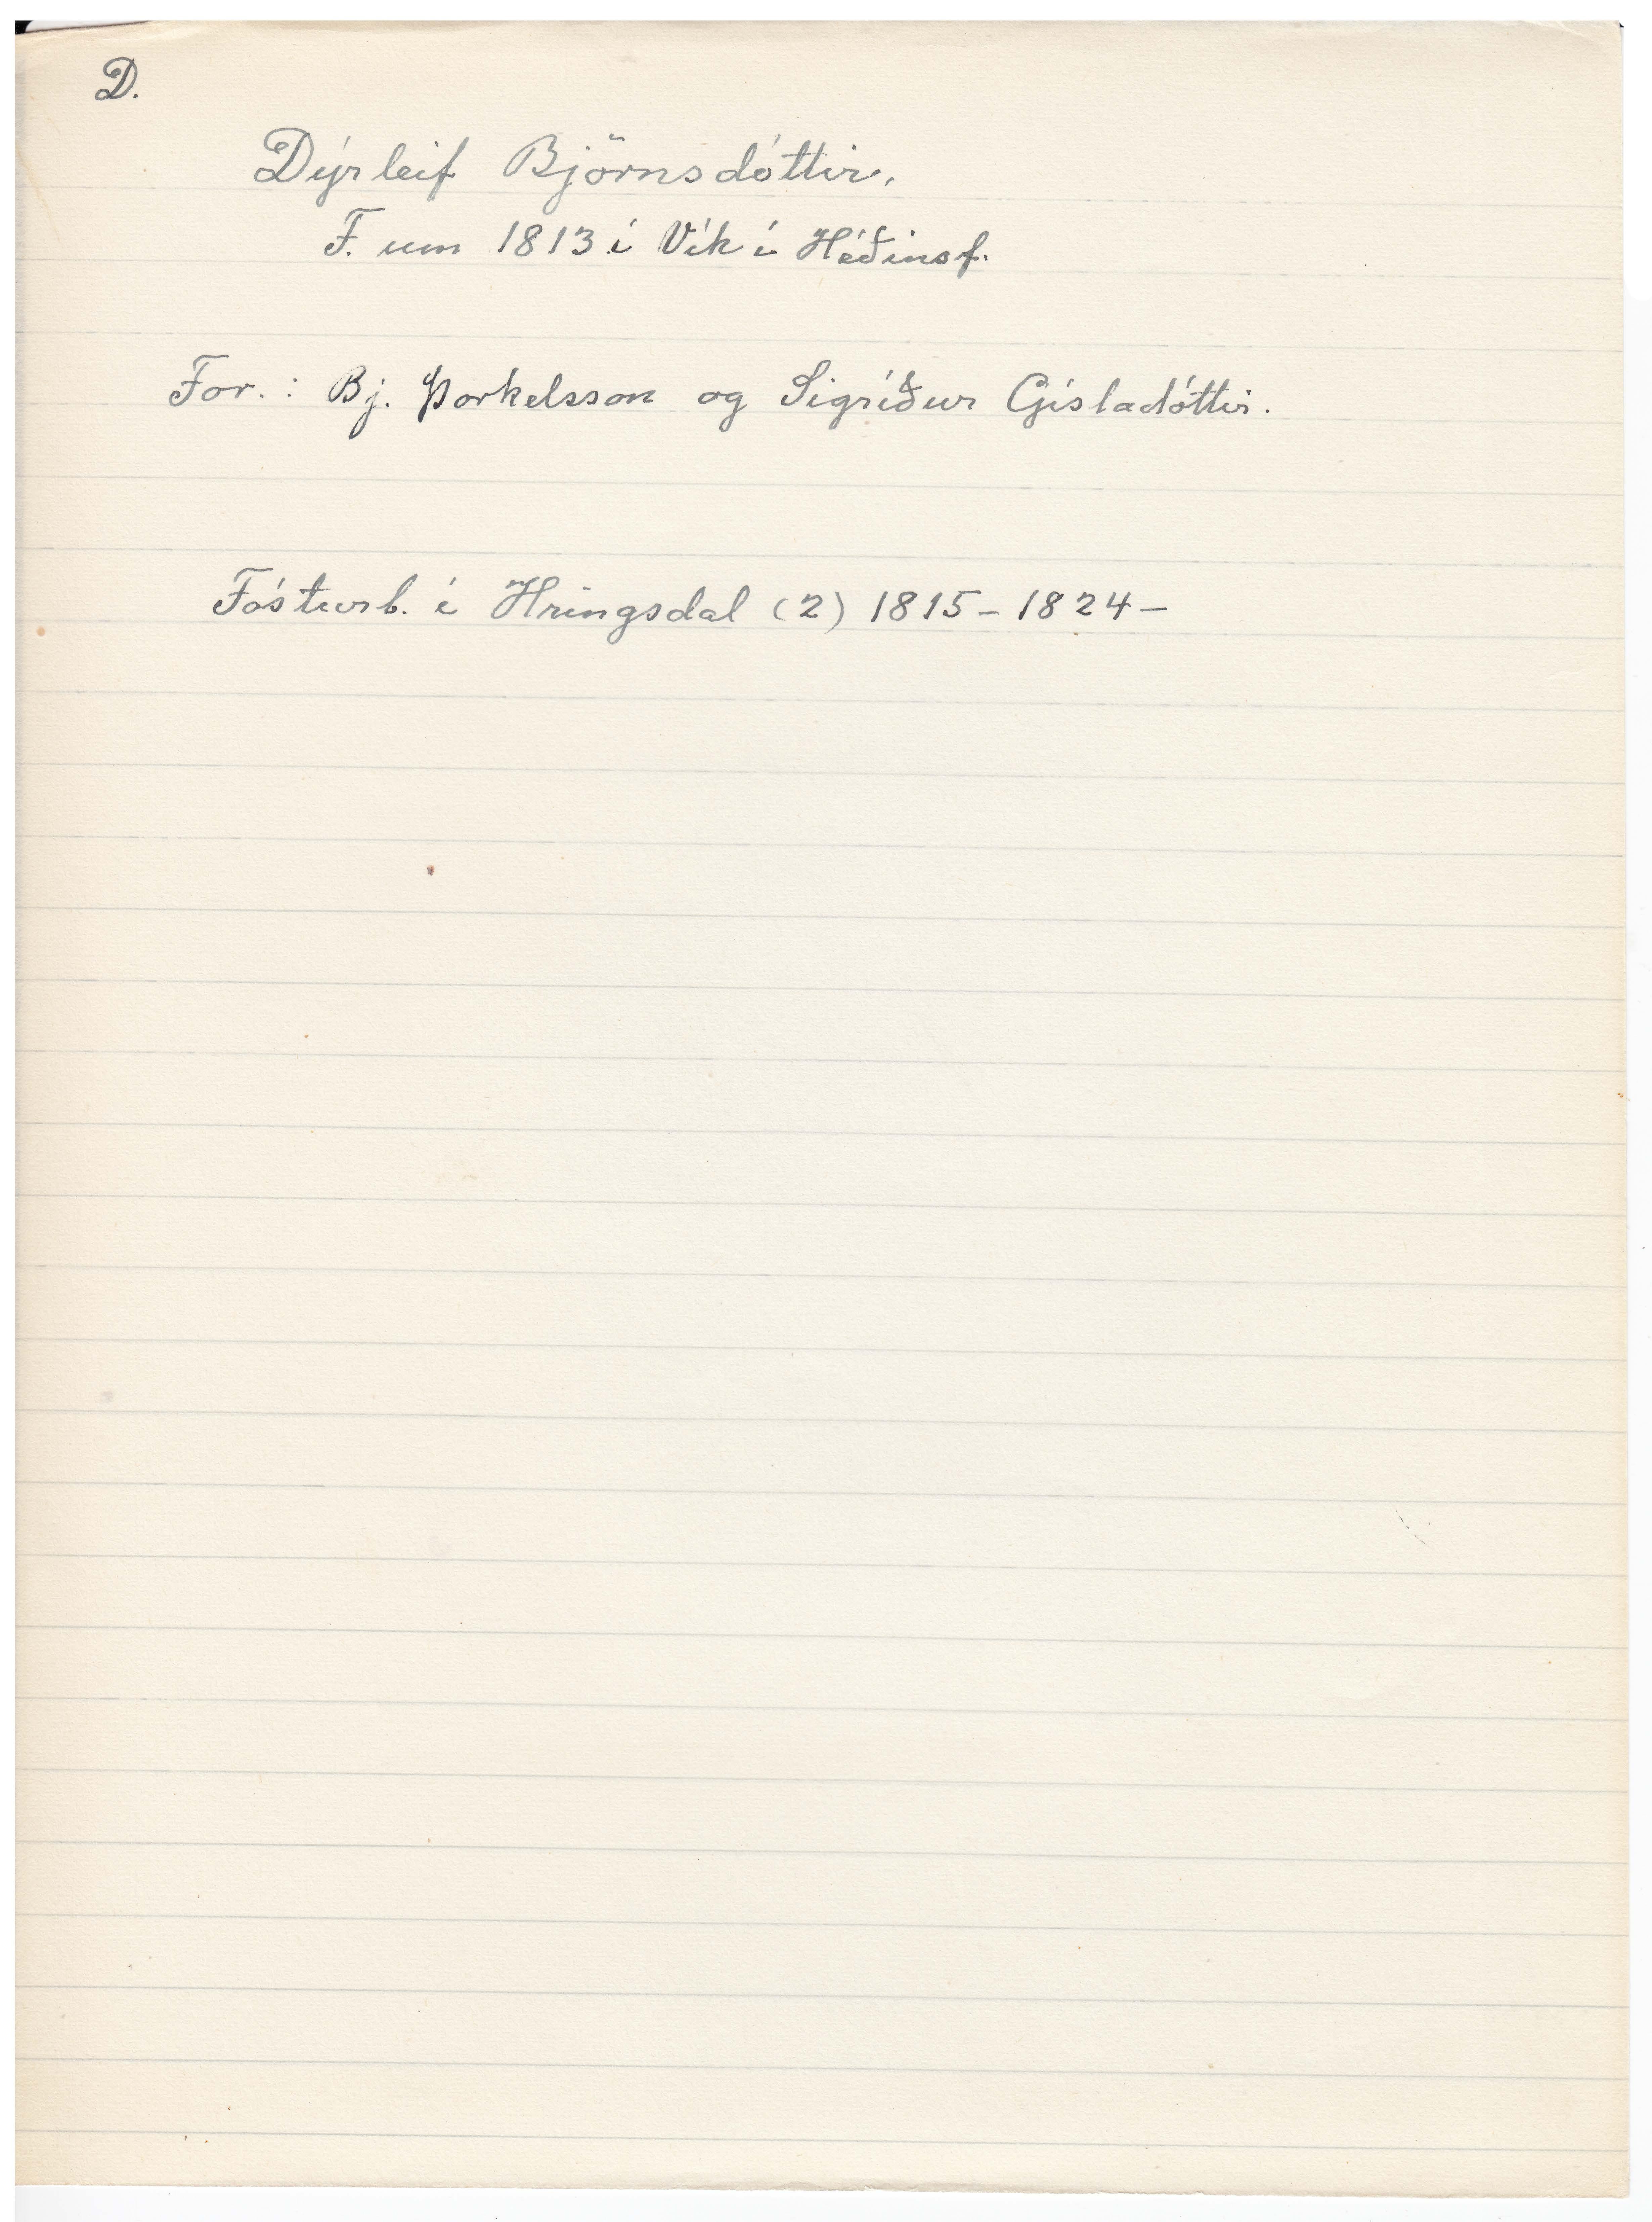 D.
Dýrleif Björnsdóttir.
F. um 1813 í Vík í Héðinsf.
For.: Bj. Þorkelsson og Sigríður Gísladóttir.
Fósturb. í Hringsdal (2) 1815 - 1824 -